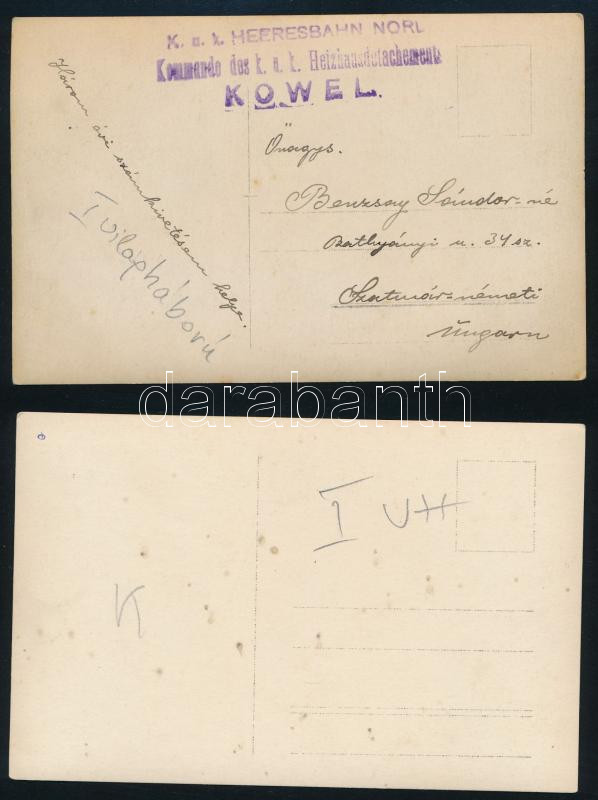 K. u. k. HEERESBAHN NORD
Kommando des k. u. k. Heizhausdetachements
KOWEL.
Három évi számkivetésem helye.
I világháború
Önagys.
Benzsay Sándor-né
Bathyányi u. 34 sz.
Szatmár-németi
Ungarn
darabanth
I VH
K